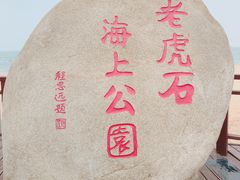 老虎石
海上公园
程思远题